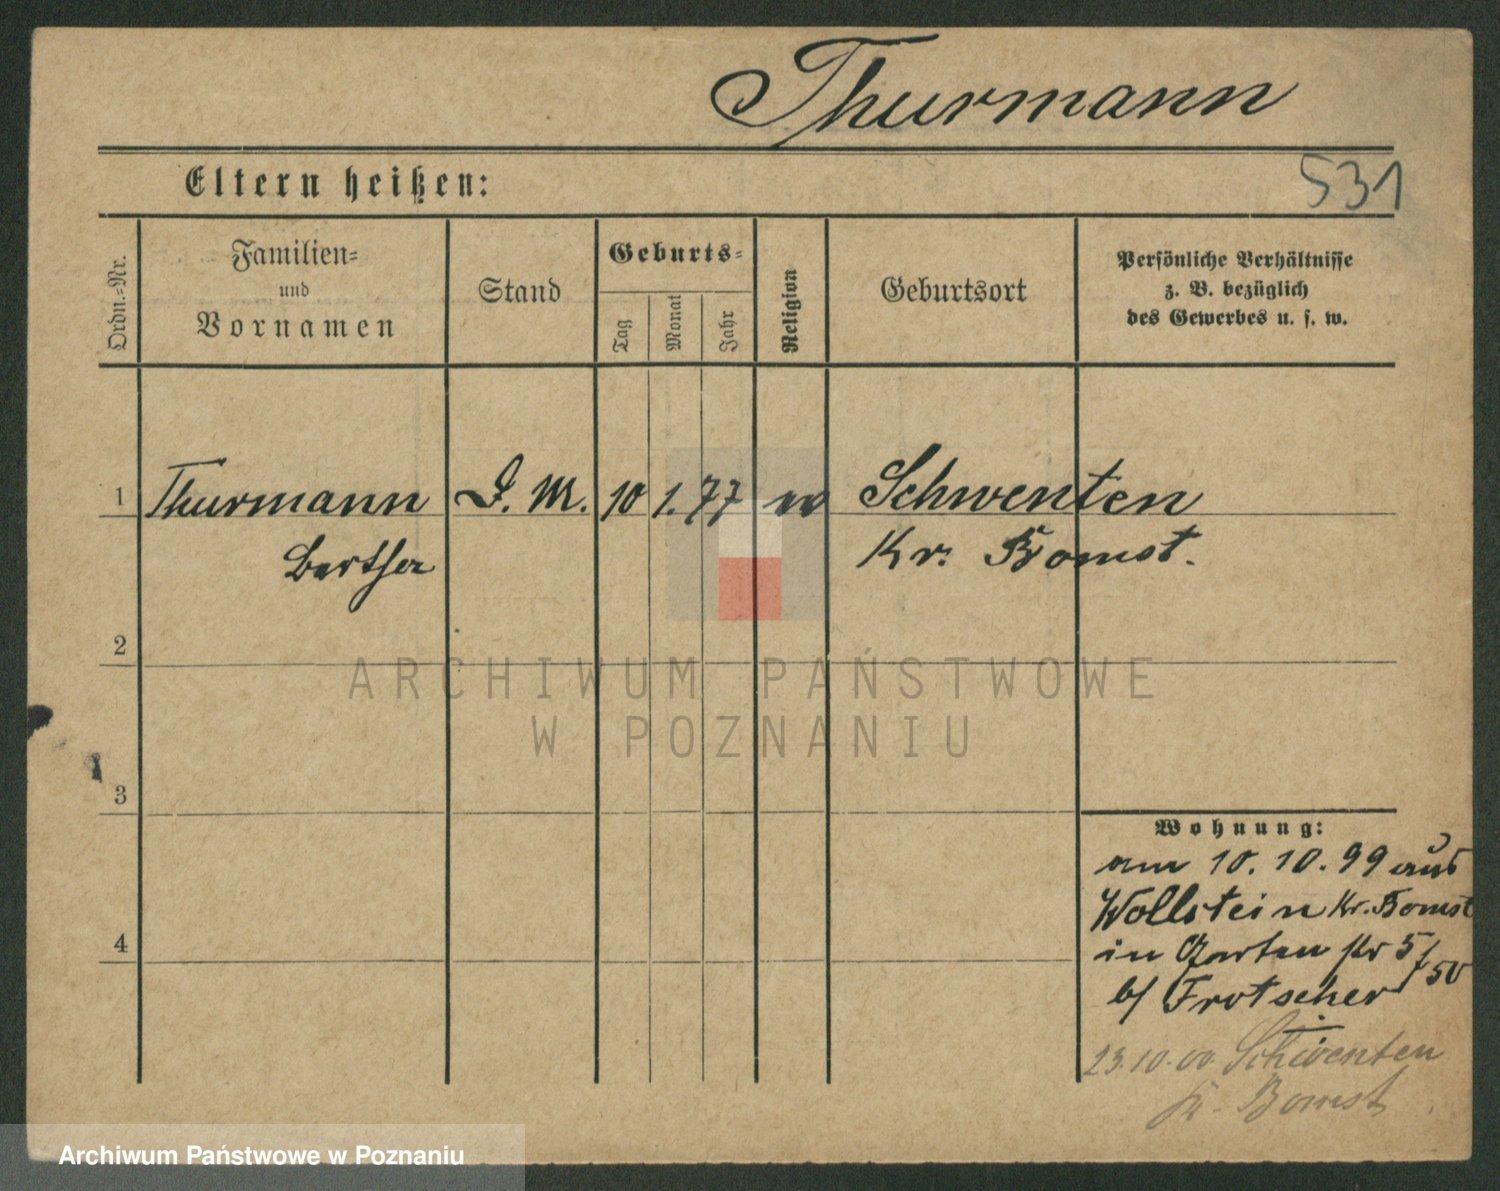 Thurmann
531
Eltern heißen:
Ordn.-Nr.
Familien-
und
Vornamen
Stand
Geburts-
Tag
Monat
Jahr
Religion
Geburtsort
Persönliche Verhältnisse
z. B. bezüglich
des Gewerbes u. s. w.
1 Thurmann D. M. 10 1. 77 Schwenten
Bertha Kr. Bomst.
2
ARCHIWUM PAŃSTWOWE
W POZNANIU
3
Wohnung:
am 10. 10. 99 aus
Wollstein Kr. Bomst
4
in Garten
b/ Frotscher
23.10.00 Schwenten
Kr. Bomst
Archiwum Państwowe w Poznaniu